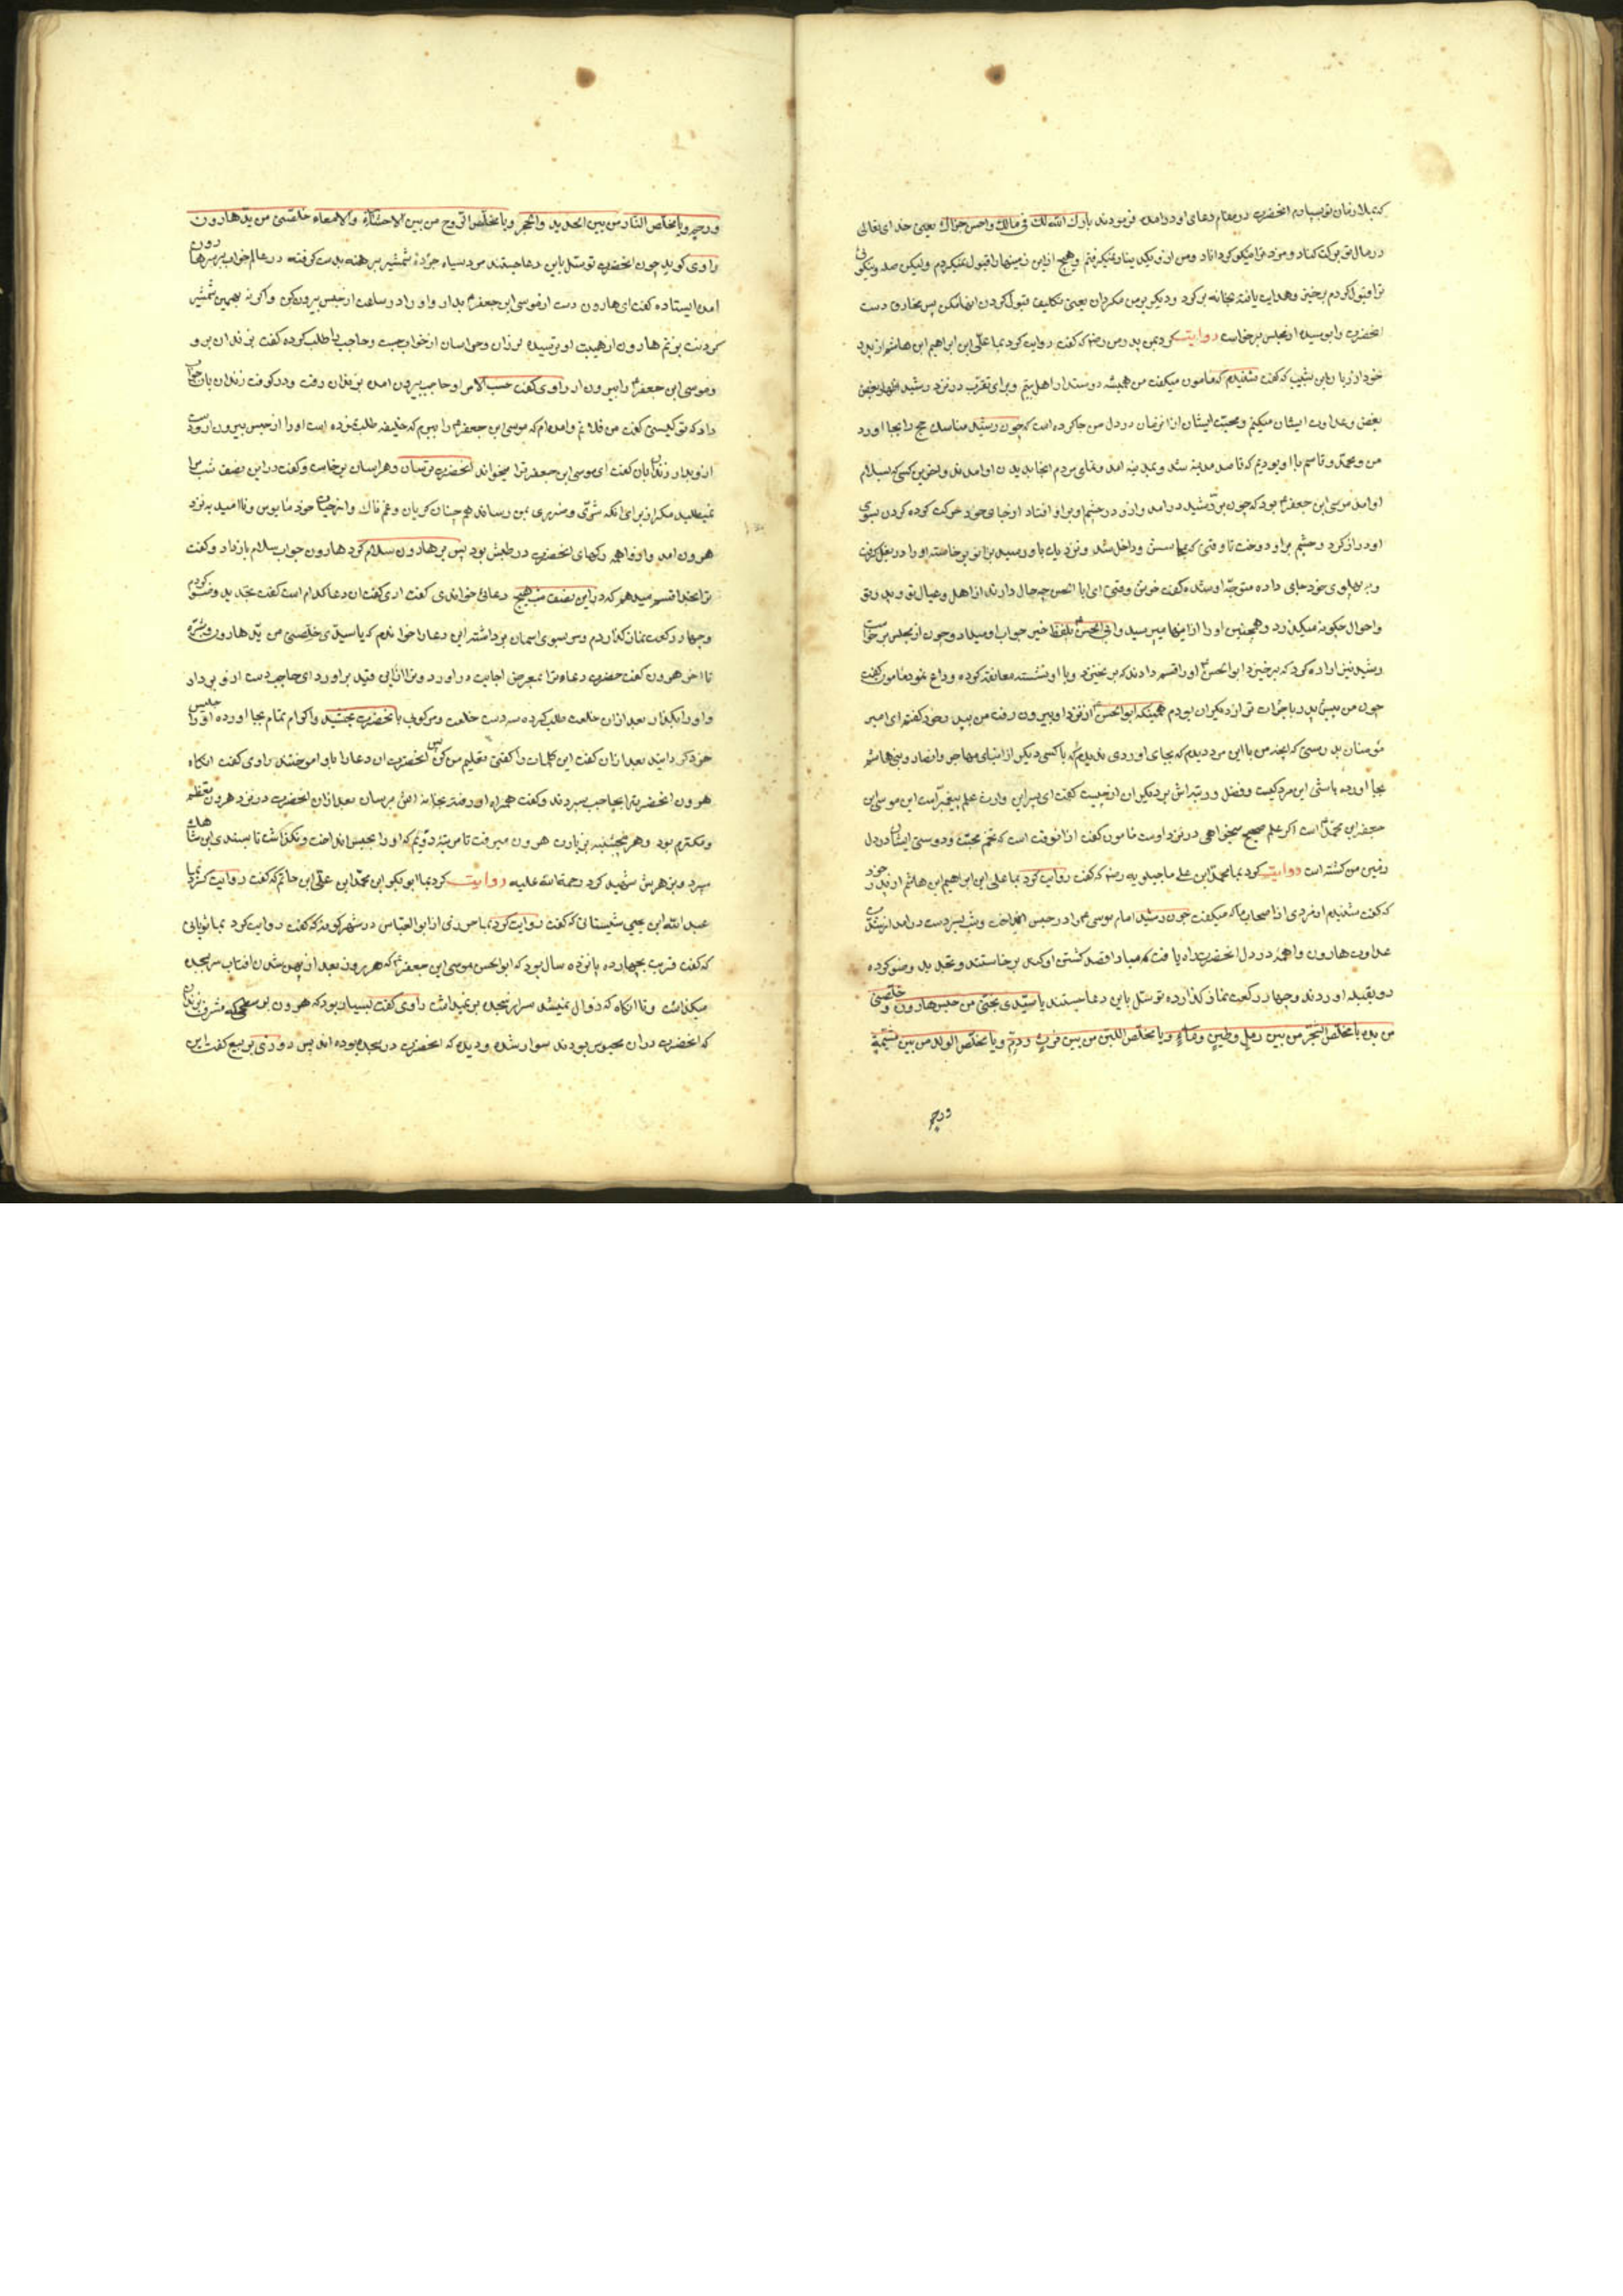 که بلا درمان تو بسپارم انحضرت در مقام دعای او در امده فرمودند بارک الله لک فی مالک واحسن جزاک یعنی خدای تعالی
در مال تو برکت کناد و مزد ترا نیکو کرداناد ومن از تو یکدینار نمیکرفتم وهیچ از این زمینها را قبول نمیکردم ولیکن صله ونیکوئی
ترا قبول کردم برخیز وهدایت یافته بخانه برکرد ودیکر بر من مکردان یعنی تکلیف قبول کردن اینها مکن پس بخاری دست
انحضرت را بوسیده از مجلس برخواست روایت کرد بمن پدر من رضه که کفت روایت کرد بما علی ابن ابراهیم ابن هاشم از پدر
خود از ریان ابن شبیب که کفت شنیدم که مامون میکفت من همیشه دوستدار اهل بیتم وبرای تقرب در نزد رشید اظهار بغض
بغض وعداوت ایشان میکنم ومحبت ایشان از انزمان در دل من جا کرده است که چون رشید مناسک حج را بجا اورد
من ومحمد وقاسم با او بودیم که قاصد مدینه شد وبمدینه امد وتمامی مردم انجا بدیدن او امدند واخرین کسی که بسلام
او امد موسی ابن جعفر بود که چون بر رشید در امد واز دور چشم او بر او افتاد از جای خود حرکت کرده کردن بسوی
او دراز کرد وچشم بر او دوخت تا وقتی که بمجلسش داخل شد ونزدیک باو رسید بزانو برخاسته او را در بغل کرفت
ودر پهلوی خود جای داده متوجه او شده کفت خوش وقتی ای ابا الحسن چه حال دارند از اهل وعیال تو وپدر تو
واحوال چکونه میکذرد وهمچنین او را از اینها میپرسید وابی الحسن بلفظ خیر جواب او میداد وچون از مجلس برخواست
رشید نیز اراده کرد که برخیزد ابو الحسن او را قسم دادند که برنخیزد وبا او نشسته معانقه کرده وداع نمود مامون کفت
چون من پیش پدر با جرأت تر از دیکران بودم همینکه ابو الحسن از نزد او بیرون رفت من بپدر خود کفتم ای امیر
مؤمنان بدرستی که انچه من با این مرد دیدم که بجای اوردی ندیدم که با کسی دیکر از ابنای مهاجر وانصار وبنی هاشم
بجا اورده باشی این مرد کیست وفضل ورتبه اش بر دیکران از چیست کفت ای پسر این وارث علم پیغمبرانست این موسی ابن
جعفر ابن محمد است اکر علم صحیح میخواهی در نزد اوست مامون کفت از انوقت است که تخم محبت ودوستی ایشان در دل
زمین من کشته است روایت کرد بما محمد ابن علی ماجیلویه رضه که کفت روایت کرد بما علی ابن ابراهیم ابن هاشم از پدر خود
که کفت شنیدم از مردی از اصحاب ما که میکفت چون رشید امام موسی را در حبس انداخت وشب بسردست در امد از شدت
عداوت هارون واهمه در دل انحضرت راه یافت که مبادا قصد کشتن او کند برخاستند وتجدید وضو کرده
رو بقبله اوردند وچهار رکعت نماز کذارده توسل باین دعا جستند یا سیدی نجنی من حبس هارون وخلصنی
من یده یا مخلص الشجر من بین رمل وطین وماء ویا مخلص اللبن من بین فرث ودم ویا مخلص الولد من بین مشیمة
ورحم
ورحم ویا مخلص النار من بین الحدید والحجر ویا مخلص الروح من بین الاحشاء والامعاء خلصنی من ید هارون
راوی کوید چون انحضرت توسل باین دعا جستند مرد سیاه جرده شمشیر برهنه بدست کرفته در عالم خواب بر سر هارون
امده ایستاده کفت ای هارون دست از موسی ابن جعفر بدار واو را در ساعت از حبس بیرون کن واکرنه بهمین شمشیر
کردنت بزنم هارون از هیبت او ترسیده لرزان وهراسان از خواب جست وحاجب را طلب کرده کفت بزندان برو
وموسی ابن جعفر را بیرون ار راوی کفت حسب الامر او حاجب بیرون امده بزندان رفت ودر کوفت زندانبان جواب
داد که تو کیستی کفت من فلانم وامده ام که موسی ابن جعفر را ببرم که خلیفه طلب نموده است او را از حبس بیرون اور دست
از او بدار زندانبان کفت ای موسی ابن جعفر ترا میخواند انحضرت ترسان وهراسان برخاست وکفت در این نصف شب مرا
نمیطلبد مکر از برای انکه شری وضرری بمن رساند همچنان کریان وغمناک واز حیات خود مأیوس وناامید بنزد
هرون امد واز واهمه رکهای انحضرت در طپش بود پس بر هارون سلام کرد هارون جواب سلام باز داد وکفت
ترا بخدا قسم میدهم که در این نصف شب هیچ دعائی خواندی کفت اری کفت ان دعا کدام است کفت تجدید وضو کردم
وچهار رکعت نماز کذاردم وسر بسوی اسمان برداشته این دعا را خواندم که یا سیدی خلصنی من ید هارون وشره
تا اخر هرون کفت حضرت دعای ترا بمعرض اجابت در اورد وترا از این قید براورد ای حاجب دست از او بردار
واو را بکذار بعد از ان خلعت طلب کرده سه دست خلعت ومرکوب بانحضرت بخشید واکرام تمام بجا اورده او را جلیس
خود کردانید بعد از ان کفت این کلمات را که کفتی تعلیم من کن پس انحضرت ان دعا را باو اموختند راوی کفت انکاه
هرون انحضرت را بحاجب سپردند وکفت همراه او رفته بخانه اش برسان بعد از ان انحضرت در نزد هرون معظم
ومکرم بود وهر پنجشنبه بزیارت هرون میرفت تا مرتبه دویم که او را بحبس انداخت ونکذاشت تا بسندی ابن شاهک
سپرد وبزهرش شهید کرد رحمة الله علیه روایت کرد بما ابو بکر ابن محمد ابن علی ابن حاتم که کفت روایت کرد بما
عبد الله ابن یحیی شیبانی که کفت روایت کرد بما خرزی از ابو العباس در شهر کوفه که کفت روایت کرد بما ثوبانی
که کفت قریب بچهارده پانزده سال بود که ابو الحسن موسی ابن جعفر که هر روز بعد از پهن شدن افتاب سر بسجده
میکذاشت وتا انکاه که زوال نمیشد سر از سجده برنمیداشت راوی کفت بسیار بود که هرون بر سطحی که مشرف بزندانی
که انحضرت در ان محبوس بودند سوار شده ودیده که انحضرت در سجده بوده اند پس روزی بربیع کفت این